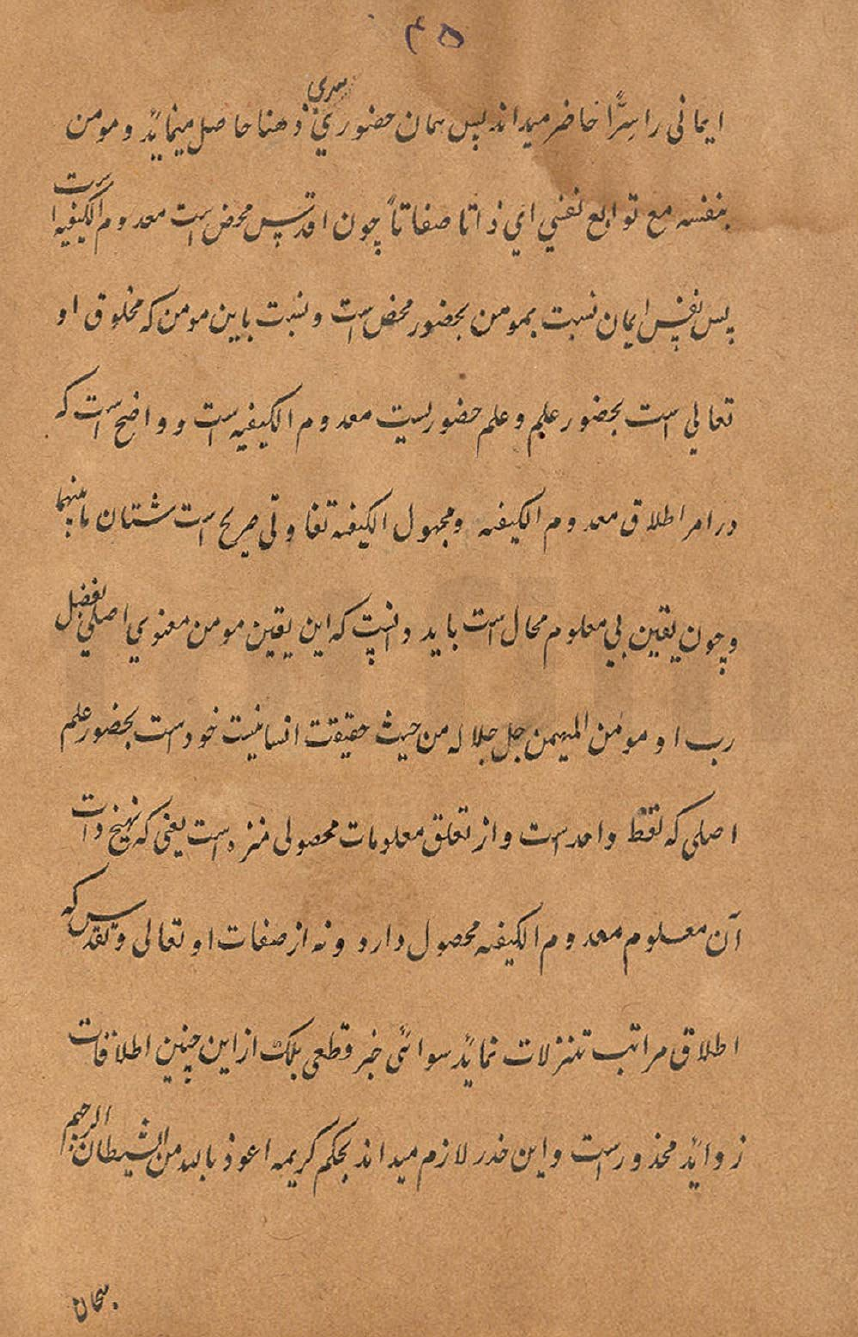 ۴۵
ایمانی را سرًّا حاضر میداند پس همان حضوری سری ذهنا حاصل مینماید و مومن
بنفسه مع توابع نفسی ای ذاتا صفاتاً چون اقدس محض است معدوم الکیفیه است
پس نفس ایمان نسبت بمومن بحضور محض است و نسبت باین مومن که مخلوق او
تعالی است بحضور علم و علم حضوریست معدوم الکیفیه است و واضح است که
در امر اطلاق معدوم الکیفیه و مجهول الکیفیه تفاوتی صریح است شتان ما بینهما
و چون یقین بی معلوم محال است باید دانست که این یقین مومن معنوی اصلی بفضل
رب او مومن المهیمن جل جلاله من حیث حقیقت انسانیت خود است بحضور علم
اصلی که فقط واحد است و از تعلق معلومات محصولی منزه است یعنی که نهیج ذات
آن معلوم معدوم الکیفیه محصول دارد و نه از صفات او تعالی و تقدس که
اطلاق مراتب تنزلات نماید سوائی خبر قطعی بلک از این چنین اطلاقات
زواید محذور است و این حذر لازم میداند بحکم کریمه اعوذ بالله من الشیطان الرجیم
سبحان